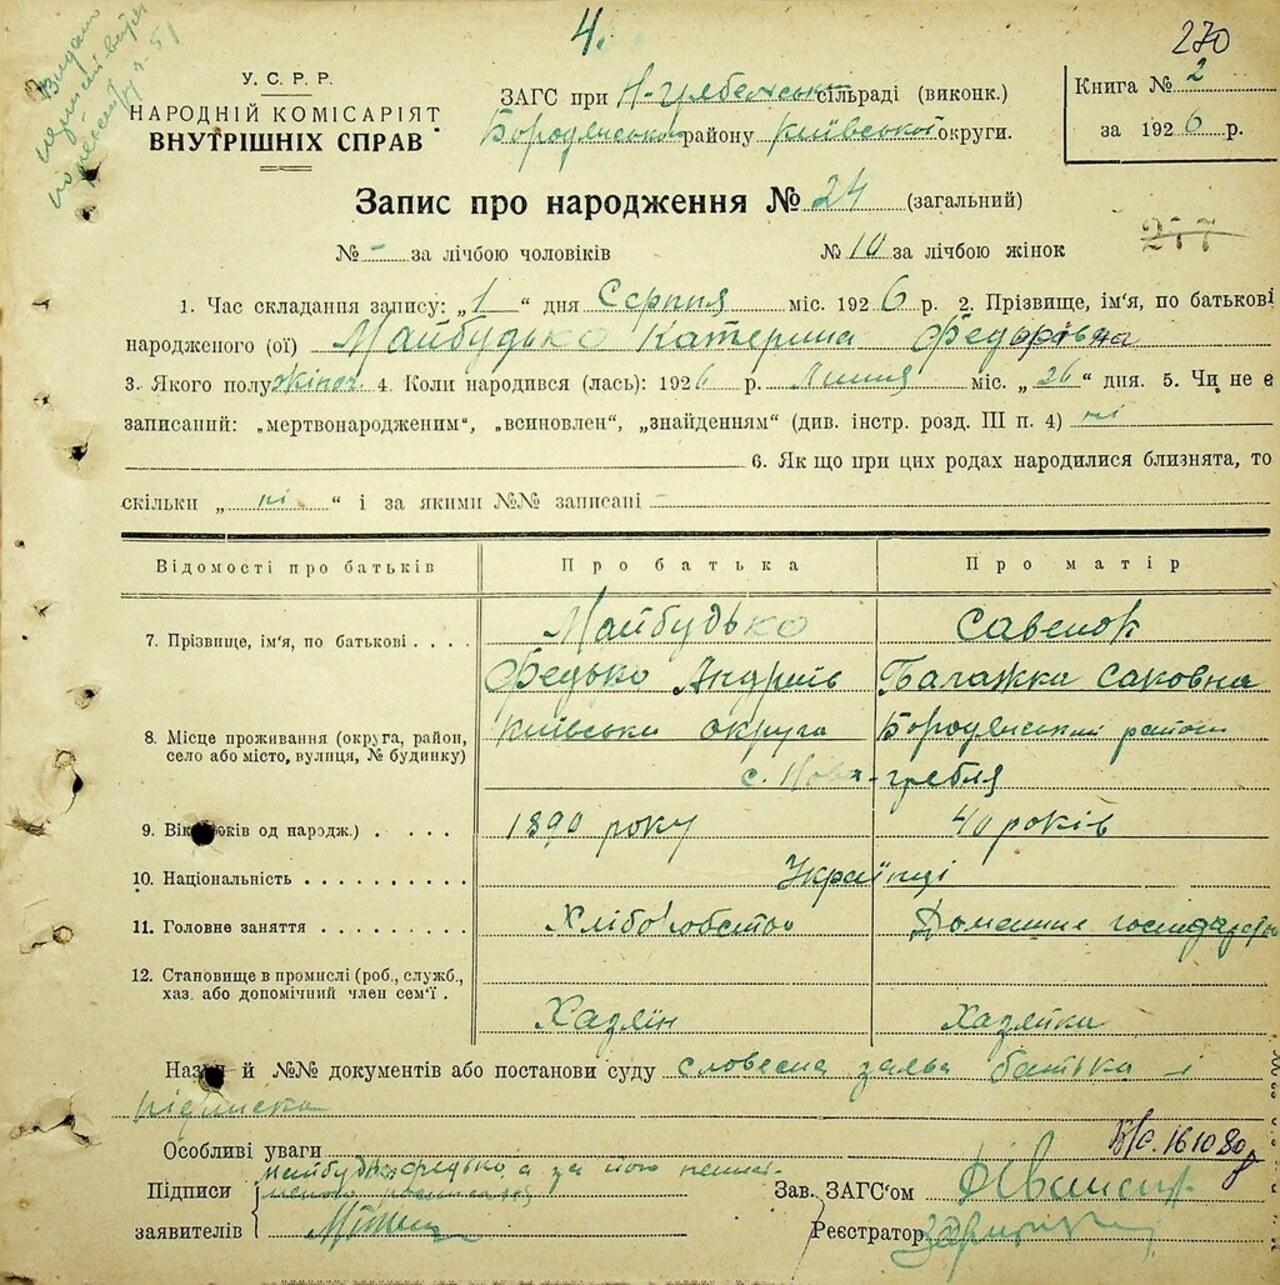 4.
270
У. С. Р. Р.
НАРОДНІЙ КОМІСАРІЯТ
ВНУТРІШНІХ СПРАВ
ЗАГС при Н-Гребельськ сільраді (виконк.)
Бородянському району Київської округи.
Книга № 2
за 1926 р.
Запис про народження № 24 (загальний)
277
№ - за лічбою чоловіків № 10 за лічбою жінок
1. Час складання запису: „1“ дня Серпня міс. 1926 р. 2. Прізвище, ім'я, по батькові
народженого (ої) Майбудько Катерина Федорівна
3. Якого полу жіноч. 4. Коли народився (лась): 1926 р. Липня міс. „26“ дня. 5. Чи не є
записаний: „мертвонародженим“, „всиновлен“, „знайденням“ (див. інстр. розд. III п. 4) ні
6. Як що при цих родах народилися близнята, то
скільки „ні“ і за якими №№ записані -
Відомості про батьків Про батька Про матір
7. Прізвище, ім'я, по батькові . . . . Майбудько Савенок
Федько Андріїв Палажка Саковна
8. Місце проживання (округа, район, село або місто, вулиця, № будинку) Київська округа Бородянський район
с. Нова-гребля
9. Вік років од народж.) . . . . 1890 року 40 років
10. Національність . . . . . . . . . . Українці
11. Головне заняття . . . . . . . . . Хліборобство Домашнє господарство
12. Становище в промислі (роб., служб., хаз. або допомічний член сем'ї .
Хазяїн Хазяйка
Назви й №№ документів або постанови суду словесна заява батька і
підписка
Особливі уваги
16 10 80
Підписи майбудько федько а за його неписьменого
заявителів
Зав. ЗАГС'ом
Реєстратор